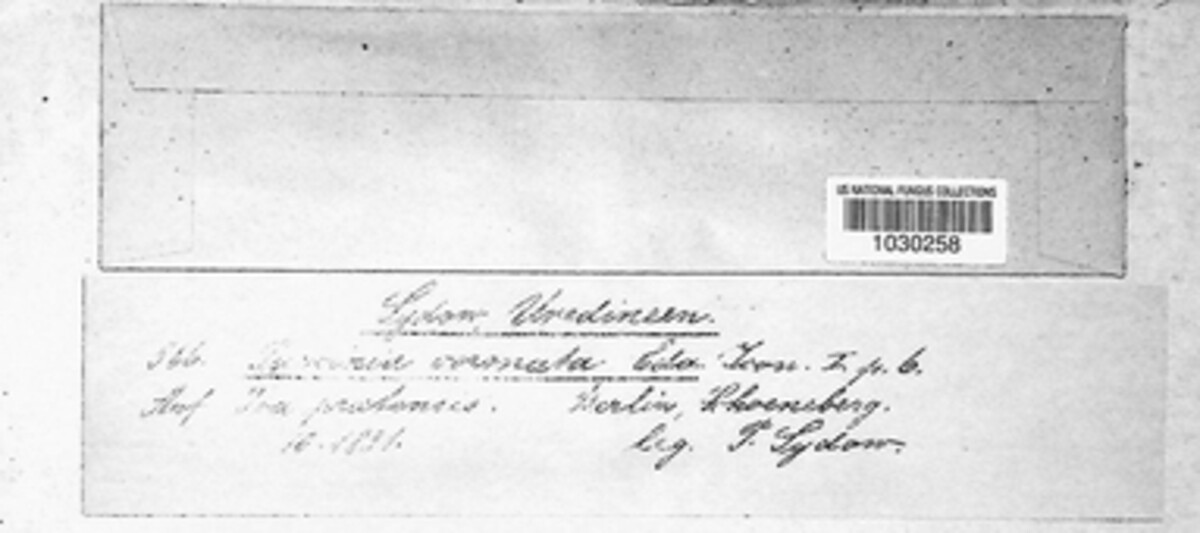 US NATIONAL FUNGUS COLLECTIONS
1030258
Sydow, Uredineen.
566. Puccinia coronata Cda. Icon. I p. 6.
Auf Poa pratensis. Berlin, Schoeneberg.
10. 1891.
leg. P. Sydow.